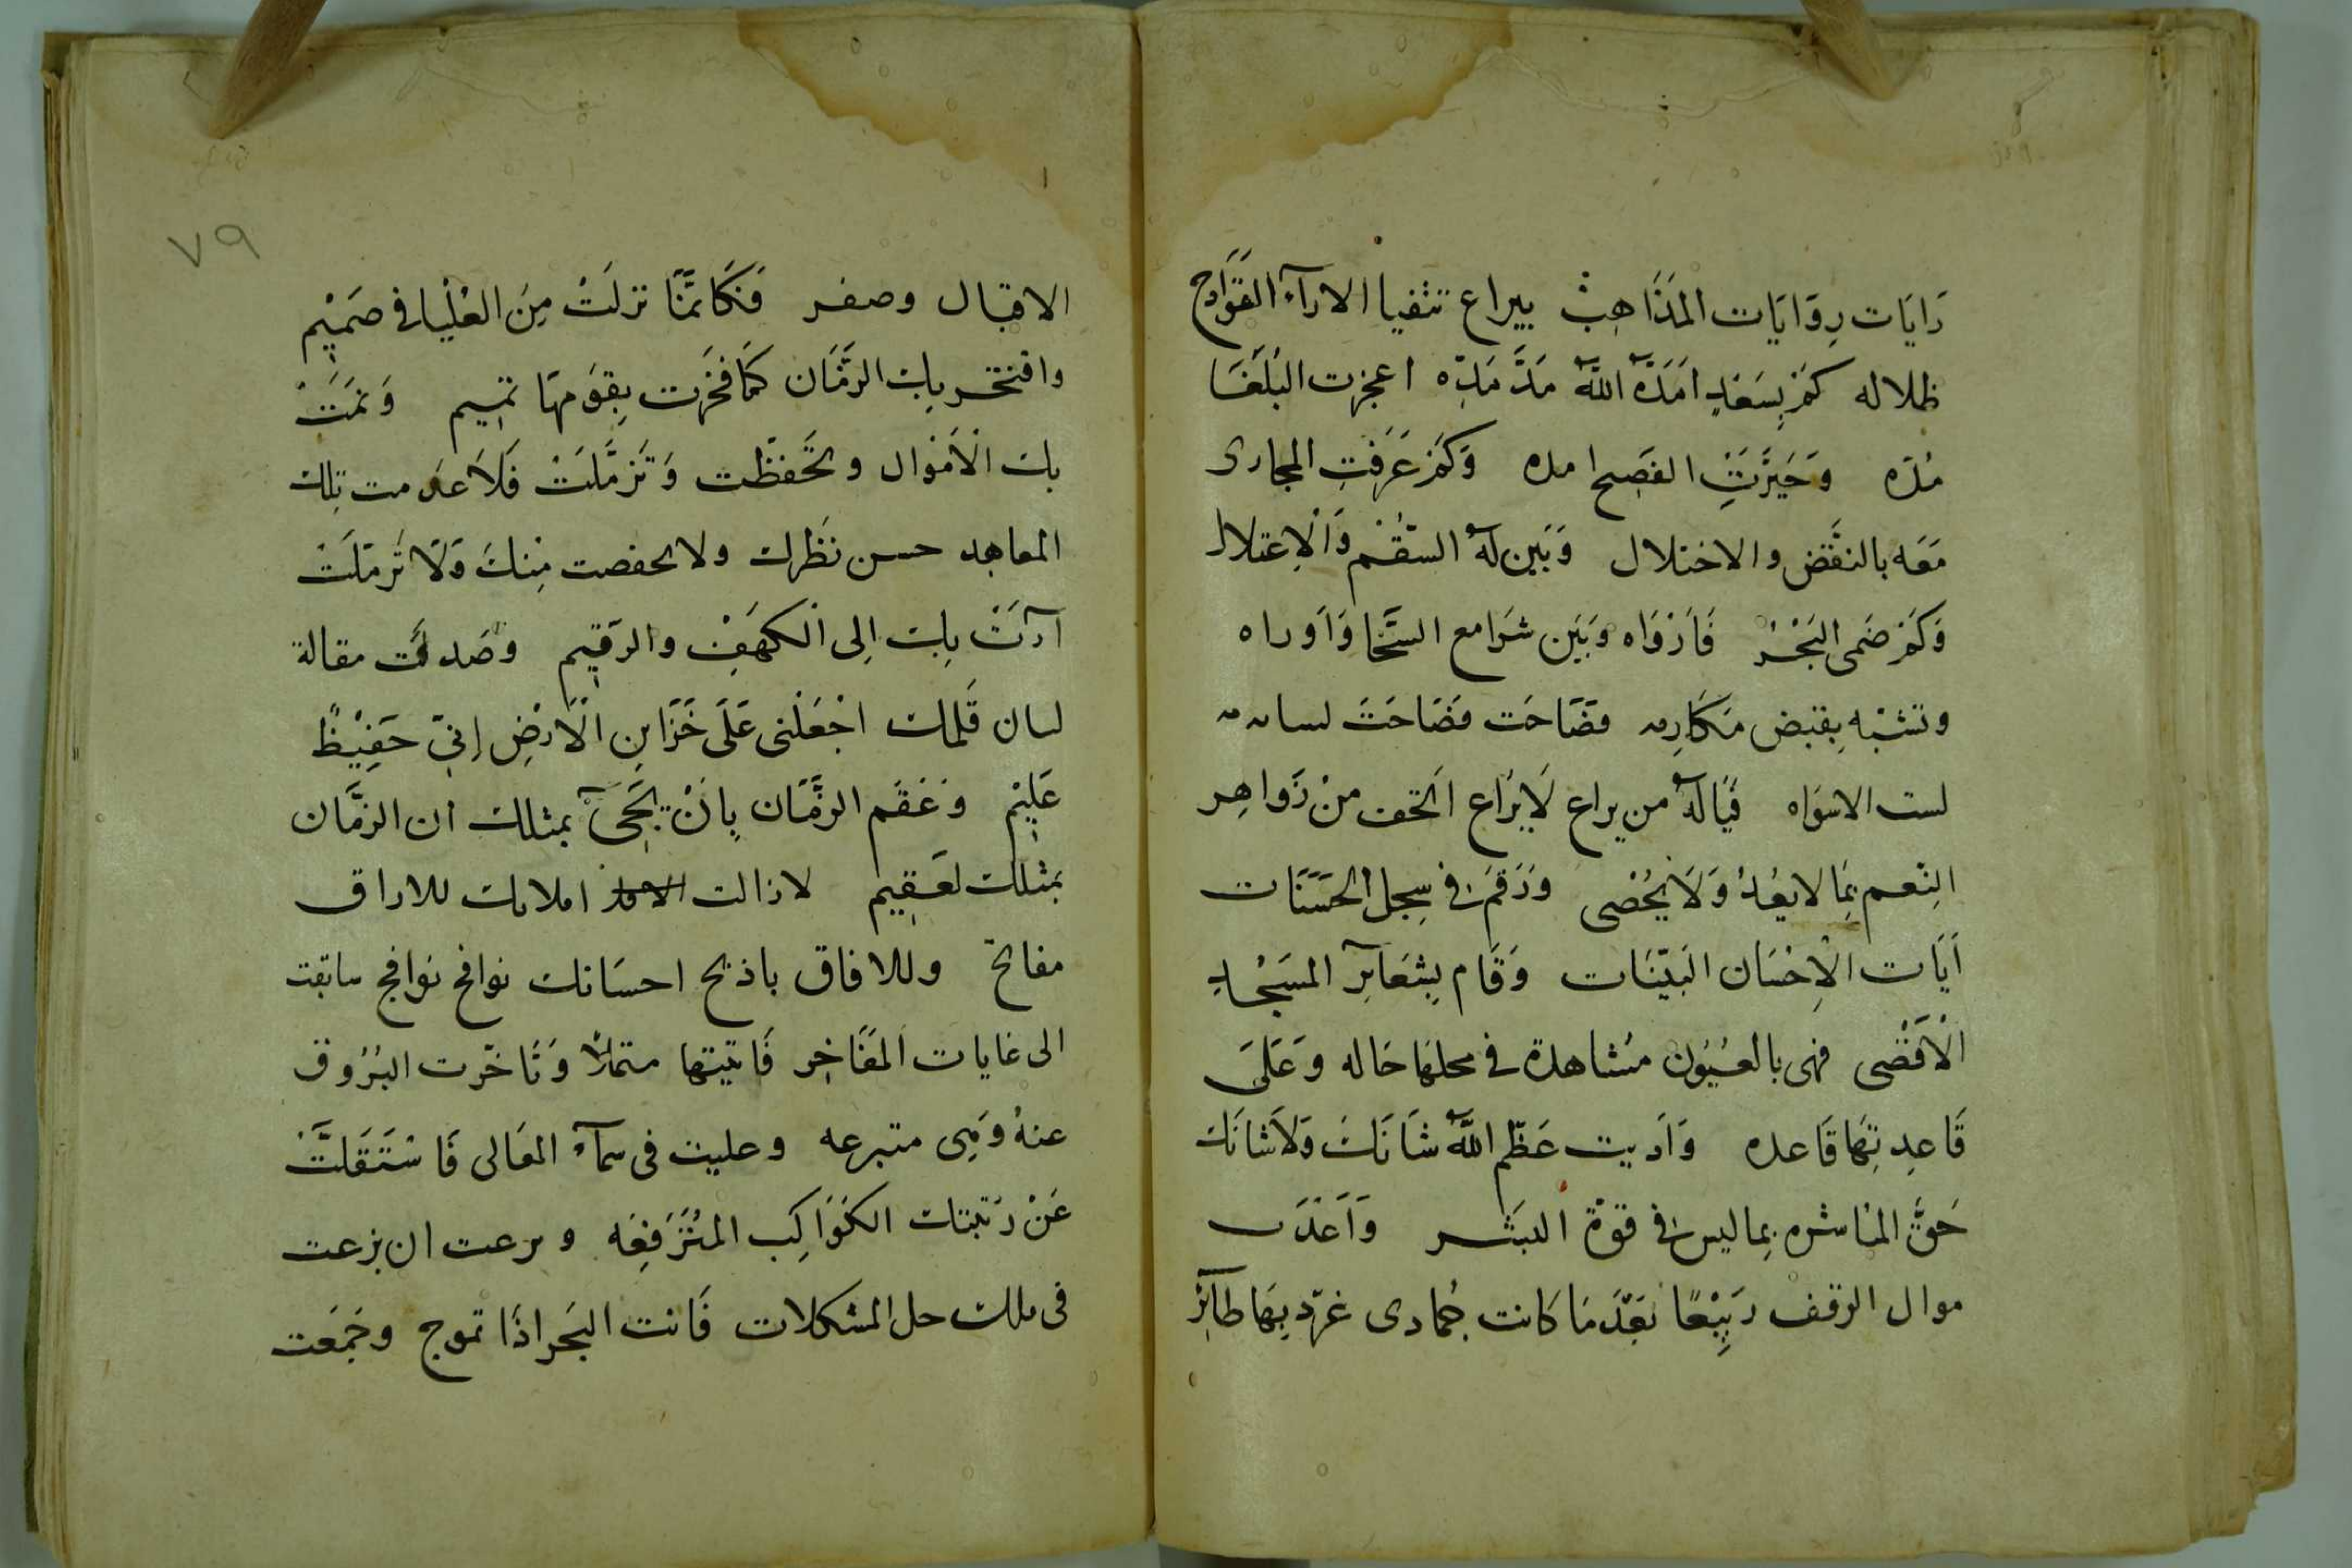 رَايَات رِوَايَات المَذَاهِبْ بيراع تتفيا الارآء القَوَادِح
ظلاله كَمْ بِسَعْدٍ امَدَّهُ اللّٰهُ مَدَّ مَدِّه اعجزت البُلَغَا
مُدَه وَحَيَّرَتِ الفَصِحا مده وَكَمْ عَرَفتِ المجارى
مَعَه بالنقَّض والاختلال وَبَين لَهُ السقُم وَالْاِعتلال
وَكَمْ ضَمى البَحْرُ فَارْوَاه وَبَيَن شرَامع السَّخا وَاَوراه
وتشبّه بِقبض مَكَارِمه فضَاحَت فَصَاحَتَ لسانه
لست الاسوَاه فيَالَهُ من يراع لَايُرَاع اتحف منْ زَواهِر
النِعم بِمَا لايعُدُ وَلَايُحْصى وَرَقَمَ فى سِجل الحَسَنَات
آيَات الْاِحْسَان البَيّنَات وَقَام بِشعَآيِرِ المسَجْدِ
الْاَقْصَى فهى بالعُيُون مشاهدة فى محلهَا خَاله وَعَلَى
قَاعِدتِهَا قَاعده وَاَديت عَظّم اللّٰهُ شَانَكَ وَلَاشَانَكَ
حَقَّ المُاشره بِما ليس فى قوّة البشَر وَاَعَدَت
موال الوقف ربِيْعًا بَعْدَ مَا كانت جُمادى غرّد بِهَا طآئرِ
٧٩
الاقبال وصفر فكَانمَّا نزلَتْ مِنَ العُلْيَا فى صَميْمٍ
وافتخر بك الزمَّان كَمَا فَخَرت بِقَومهَا تميم وَنمَتَ
بك الْاَمْوال وتحَّفظَّت وَتَزمَّلَتْ فَلاَ عدمت تلك
المعاهد حسن نَظَرك ولا تحفصت مِنكَ وَلَا تَرمَلَتْ
آرَتْ بك اِلى الكهَفِ والرَقيم وصَدقَت مقالة
لسان قَلمك اجْعَلْنى عَلَى خَزَاينِ الْاَرْضِ اِنّى حَفِيْظٌ
عَلِيْمٌ وَعَقمَ الزمَّان بِانْ يَجَىَٔ بمثلك ان الزمَّان
بمثلك لعَقِيم لازالت املاك للاراق
مفاتح وللافاق باذيح احسَانك نوافح نوافج سابقت
الى غايات المفَاخِر فَاتيتها متملاً وَتَاخّرت البُرُوق
عنهُ وَهِى متبرعه وعليت فى سمآء المعَالى فَاسْتَقَلتَّ
عَنْ رَتبتك الكوَاكِب المُترَفِعَه وبرعت ان بزعت
فى ملك حل المشكلات فَانت البَحر اذَا تموج وجَمَعت